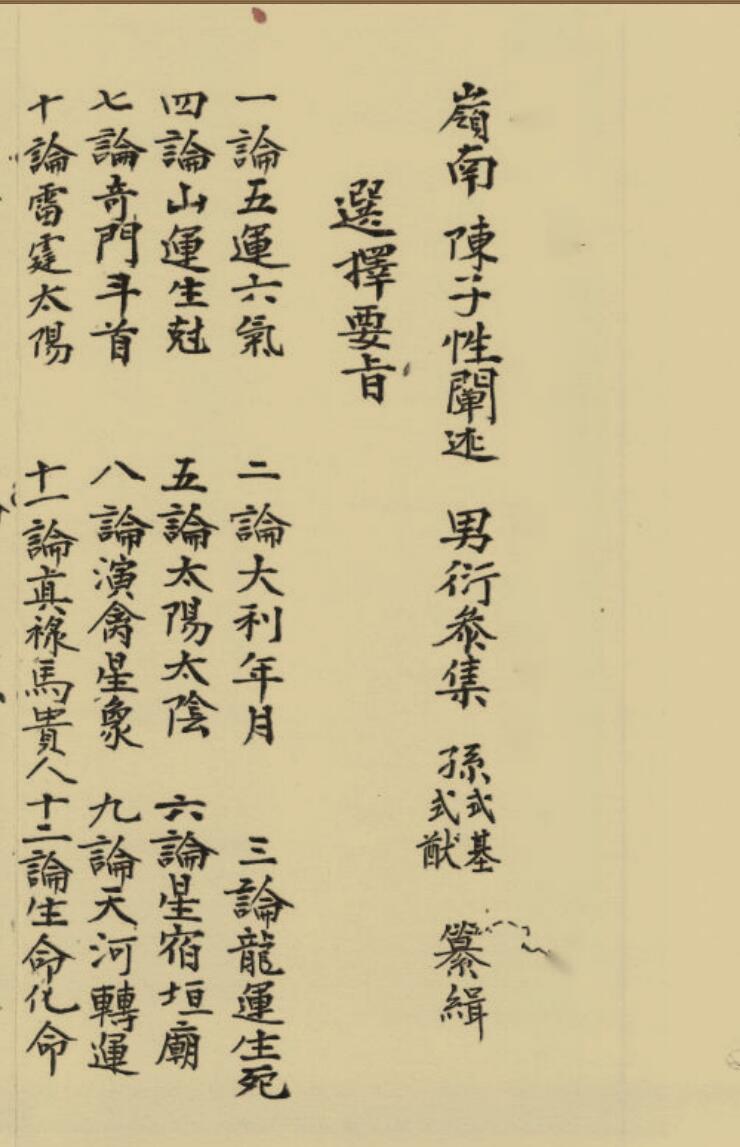 嶺南 陳子性闡述 男衍叅集 孫式基式猷 纂緝
選擇要旨
一論五運六氣 二論大利年月 三論龍運生死
四論山運生尅 五論太陽太陰 六論星宿垣廟
七論奇門斗首 八論演禽星象 九論天河轉運
十論雷霆太陽 十一論眞祿馬貴人 十二論生命化命